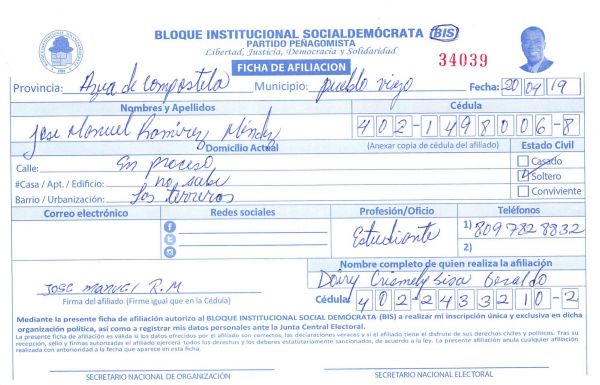 BLOQUE INSTITUCIONAL SOCIALDEMÓCRATA (BIS)
PARTIDO PEÑAGOMISTA
Libertad, Justicia, Democracia y Solidaridad
FICHA DE AFILIACION
34039
Provincia: Azua de Compostela Municipio: pueblo viejo Fecha: 20 04 19
Nombres y Apellidos Cédula
Jose Manuel Ramirez Mendez 402-1498006-8
Domicilio Actual (Anexar copia de cédula del afiliado) Estado Civil
Calle: En proceso Casado
#Casa / Apt. / Edificio: no sabe Soltero
Barrio / Urbanización: Los terreros Conviviente
Correo electrónico Redes sociales Profesión/Oficio Teléfonos
Estudiante 1) 809 782 8832
2)
Nombre completo de quien realiza la afiliación
JOSE MANUEL R.M Crismely
Firma del afiliado (Firme igual que en la Cédula) Cédula 402-2433210-2
Mediante la presente ficha de afiliación autorizo al BLOQUE INSTITUCIONAL SOCIAL DEMÓCRATA (BIS) a realizar mi inscripción única y exclusiva en dicha
organización política, así como a registrar mis datos personales ante la Junta Central Electoral.
La presente ficha de afiliación es válida si los datos ofrecidos por el afiliado son correctos, las declaraciones veraces y si el titular es disfrute de sus derechos civiles y políticos. Tras su
recepción, sello y firmas autorizadas el afiliado ejercerá todos los derechos y los deberes estatutariamente sancionados, de acuerdo a la ley. La presente afiliación anula cualquier afiliación
realizada con anterioridad a la fecha que aparece en esta ficha.
SECRETARIO NACIONAL DE ORGANIZACIÓN SECRETARIO NACIONAL ELECTORAL